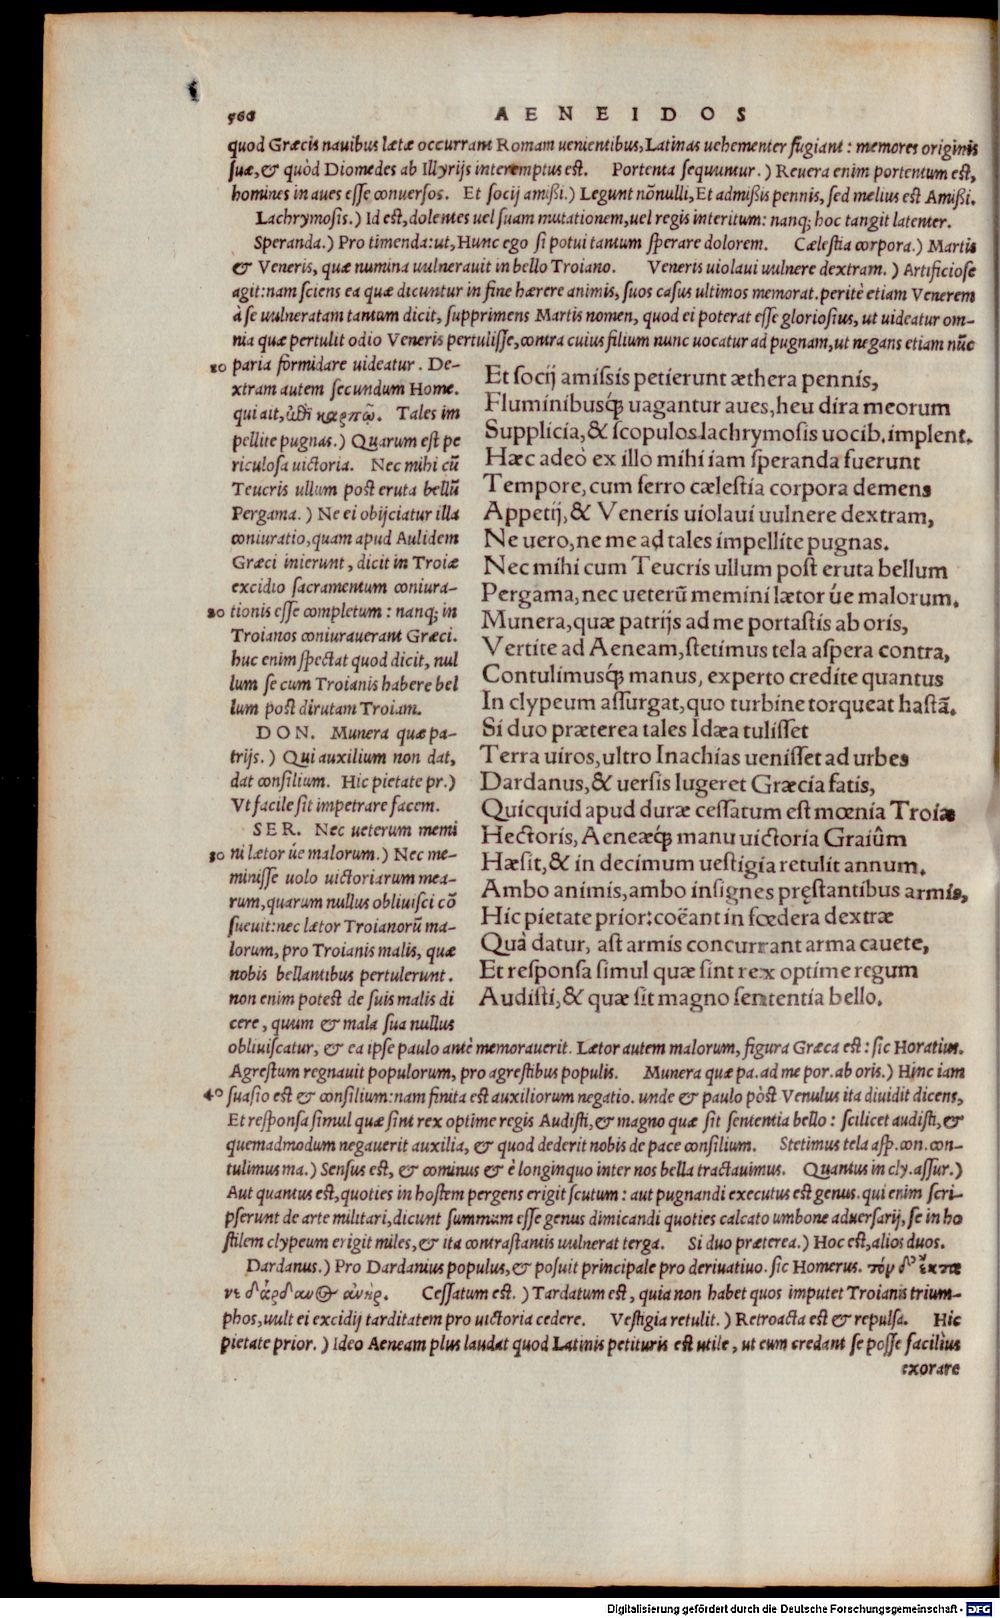 566 AENEIDOS
quod Græcis nauibus lætæ occurrant Romam uenientibus, Latinas uehementer fugiant: memores originis
suæ, & quòd Diomedes ab Illyrijs interemptus est. Portenta sequuntur.) Reuera enim portentum est,
homines in aues esse conuersos. Et socij amißi.) Legunt nõnulli, Et admißis pennis, sed melius est Amißi.
Lachrymosis.) Id est, dolentes uel suam mutationem, uel regis interitum: nanq; hoc tangit latenter.
Speranda.) Pro timenda: ut, Hunc ego si potui tantum sperare dolorem. Cælestia corpora.) Martis
& Veneris, quæ numina uulnerauit in bello Troiano. Veneris uiolaui uulnere dextram.) Artificiose
agit: nam sciens ea quæ dicuntur in fine hærere animis, suos casus ultimos memorat. peritè etiam Venerem
à se uulneratam tantum dicit, supprimens Martis nomen, quod ei poterat esse gloriosius, ut uideatur om-
nia quæ pertulit odio Veneris pertulisse, contra cuius filium nunc uocatur ad pugnam, ut negans etiam nũc
10 paria formidare uideatur. De-
xtram autem secundum Home.
qui ait, ἐπὶ καρπῷ. Tales im
pellite pugnas.) Quarum est pe
riculosa uictoria. Nec mihi cũ
Teucris ullum post eruta bellũ
Pergama.) Ne ei obijciatur illa
coniuratio, quam apud Aulidem
Græci inierunt, dicit in Troiæ
excidio sacramentum coniura-
20 tionis esse completum: nanq; in
Troianos coniurauerant Græci.
huc enim spectat quod dicit, nul
lum se cum Troianis habere bel
lum post dirutam Troiam.
DON. Munera quæ pa-
trijs.) Qui auxilium non dat,
dat consilium. Hic pietate pr.)
Vt facile sit impetrare facem.
SER. Nec ueterum memi
30 ni lætor úe malorum.) Nec me-
minisse uolo uictoriarum mea-
rum, quarum nullus obliuisci cõ
sueuit: nec lætor Troianorũ ma-
lorum, pro Troianis malis, quæ
nobis bellantibus pertulerunt.
non enim potest de suis malis di
cere, quum & mala sua nullus
Et socij amissis petierunt æthera pennis,
Fluminibusq́; uagantur aues, heu dira meorum
Supplicia, & scopulos lachrymosis uocib. implent.
Hæc adeò ex illo mihi iam speranda fuerunt
Tempore, cum ferro cælestia corpora demens
Appetij, & Veneris uiolaui uulnere dextram,
Ne uero, ne me ad tales impellite pugnas.
Nec mihi cum Teucris ullum post eruta bellum
Pergama, nec ueterũ memini lætor úe malorum.
Munera, quæ patrijs ad me portastis ab oris,
Vertite ad Aeneam, stetimus tela aspera contra,
Contulimusq́; manus, experto credite quantus
In clypeum assurgat, quo turbine torqueat hastã.
Si duo præterea tales Idæa tulisset
Terra uiros, ultro Inachias uenisset ad urbes
Dardanus, & uersis lugeret Græcia fatis,
Quicquid apud duræ cessatum est mœnia Troiæ
Hectoris, Aeneæq́; manu uictoria Graiûm
Hæsit, & in decimum uestigia retulit annum.
Ambo animis, ambo insignes pręstantibus armis,
Hic pietate prior: coëant in fœdera dextræ
Quà datur, ast armis concurrant arma cauete,
Et responsa simul quæ sint rex optime regum
Audisti, & quæ sit magno sententia bello.
obliuiscatur, & ea ipse paulo antè memorauerit. Lætor autem malorum, figura Græca est: sic Horatius.
Agrestum regnauit populorum, pro agrestibus populis. Munera quæ pa. ad me por. ab oris.) Hinc iam
40 suasio est & consilium: nam finita est auxiliorum negatio. unde & paulo pòst Venulus ita diuidit dicens,
Et responsa simul quæ sint rex optime regis Audisti, & magno quæ sit sententia bello: scilicet audisti, &
quemadmodum negauerit auxilia, & quod dederit nobis de pace consilium. Stetimus tela asp. con. con-
tulimus ma.) Sensus est, & cominus & è longinquo inter nos bella tractauimus. Quantus in cly. assur.)
Aut quantus est, quoties in hostem pergens erigit scutum: aut pugnandi executus est genus. qui enim scri-
pserunt de arte militari, dicunt summum esse genus dimicandi quoties calcato umbone aduersarij, se in ho
stilem clypeum erigit miles, & ita contrastantis uulnerat terga. Si duo præterea.) Hoc est, alios duos.
Dardanus.) Pro Dardanius populus, & posuit principale pro deriuatiuo. sic Homerus. τόν δ' ἔκτα
νε δάρδανος ἀνήρ. Cessatum est.) Tardatum est, quia non habet quos imputet Troianis trium-
phos, uult ei excidij tarditatem pro uictoria cedere. Vestigia retulit.) Retroacta est & repulsa. Hic
pietate prior.) Ideo Aeneam plus laudat quod Latinis petituris est utile, ut eum credant se posse facilius
exorare
Digitalisierung gefördert durch die Deutsche Forschungsgemeinschaft - DFG